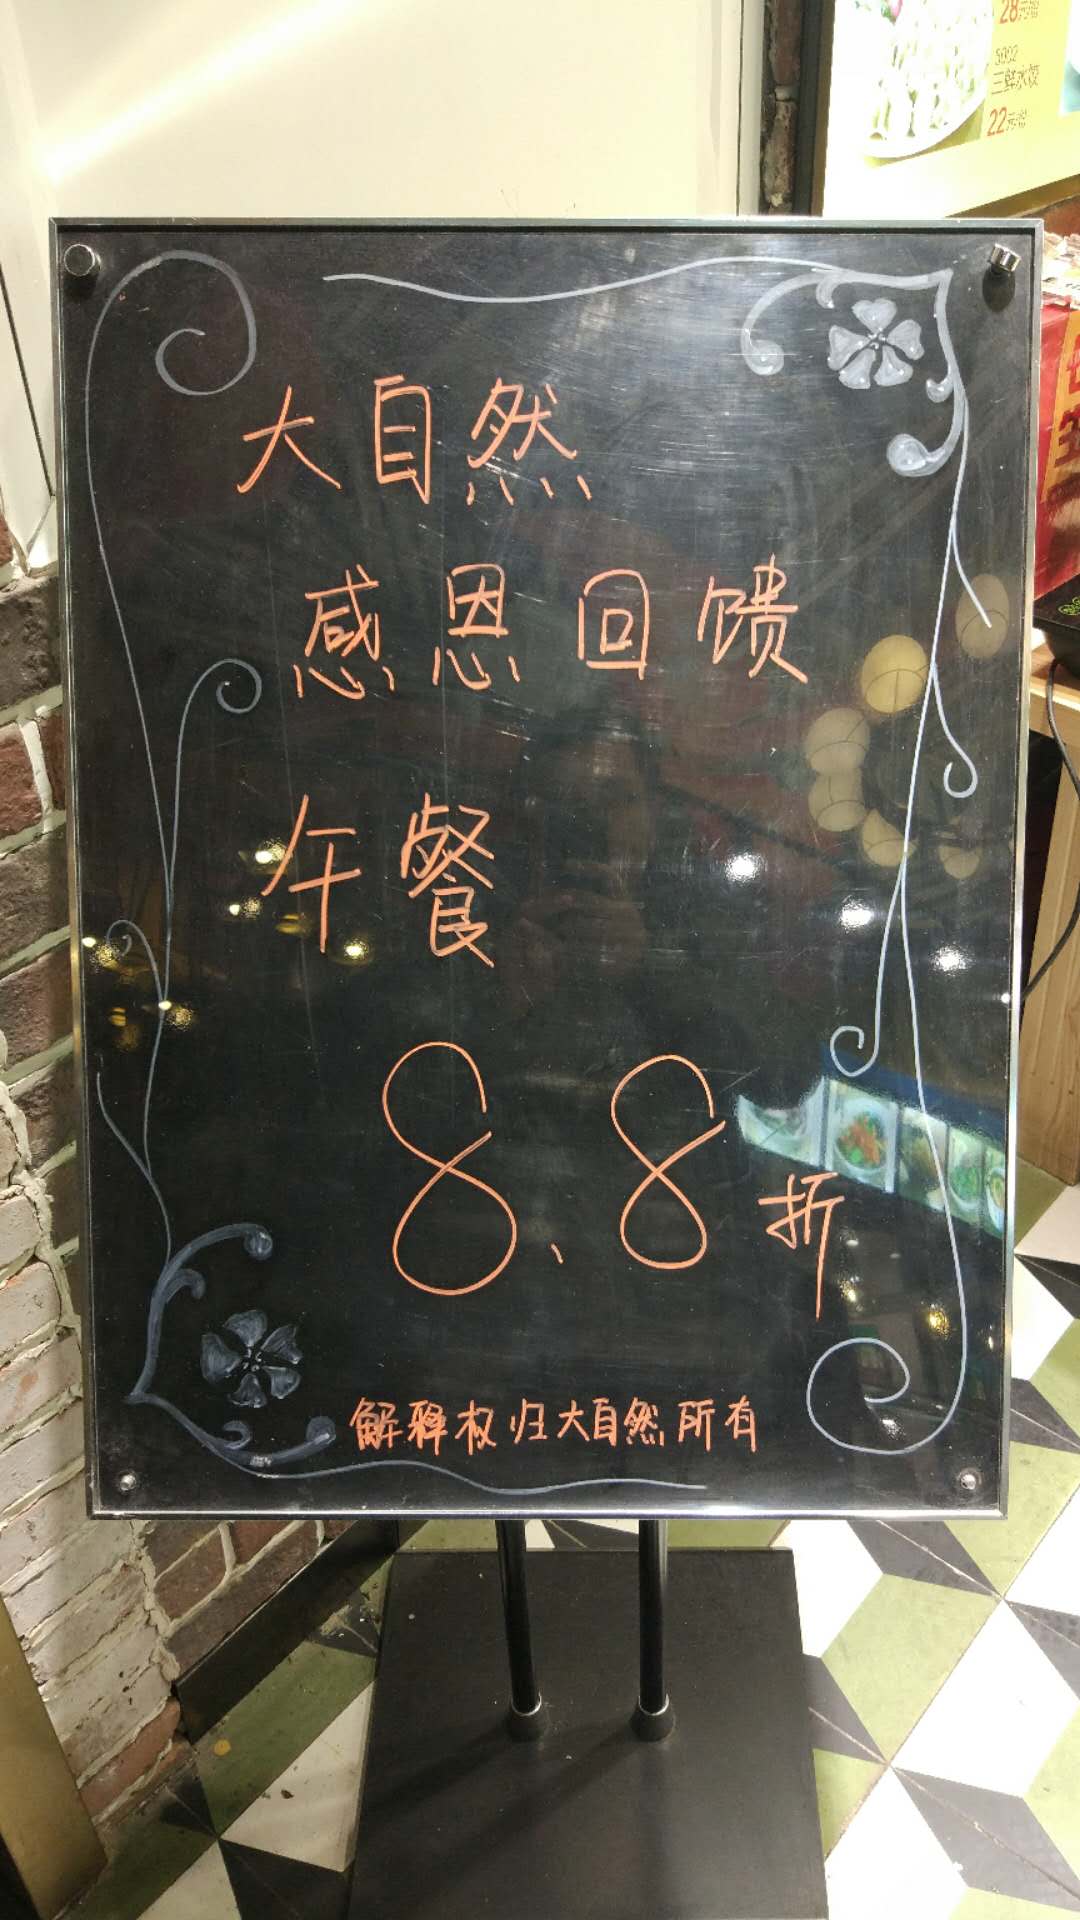 大自然
感恩回馈
午餐
8、8折
解释权归大自然所有
28元/份
3002
三鲜水饺
22元/份